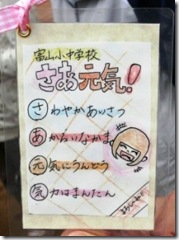 富山小中学校
さあ元気!
さわやかあいさつ
あかるいなかま
元気にうんどう
気力はまんたん